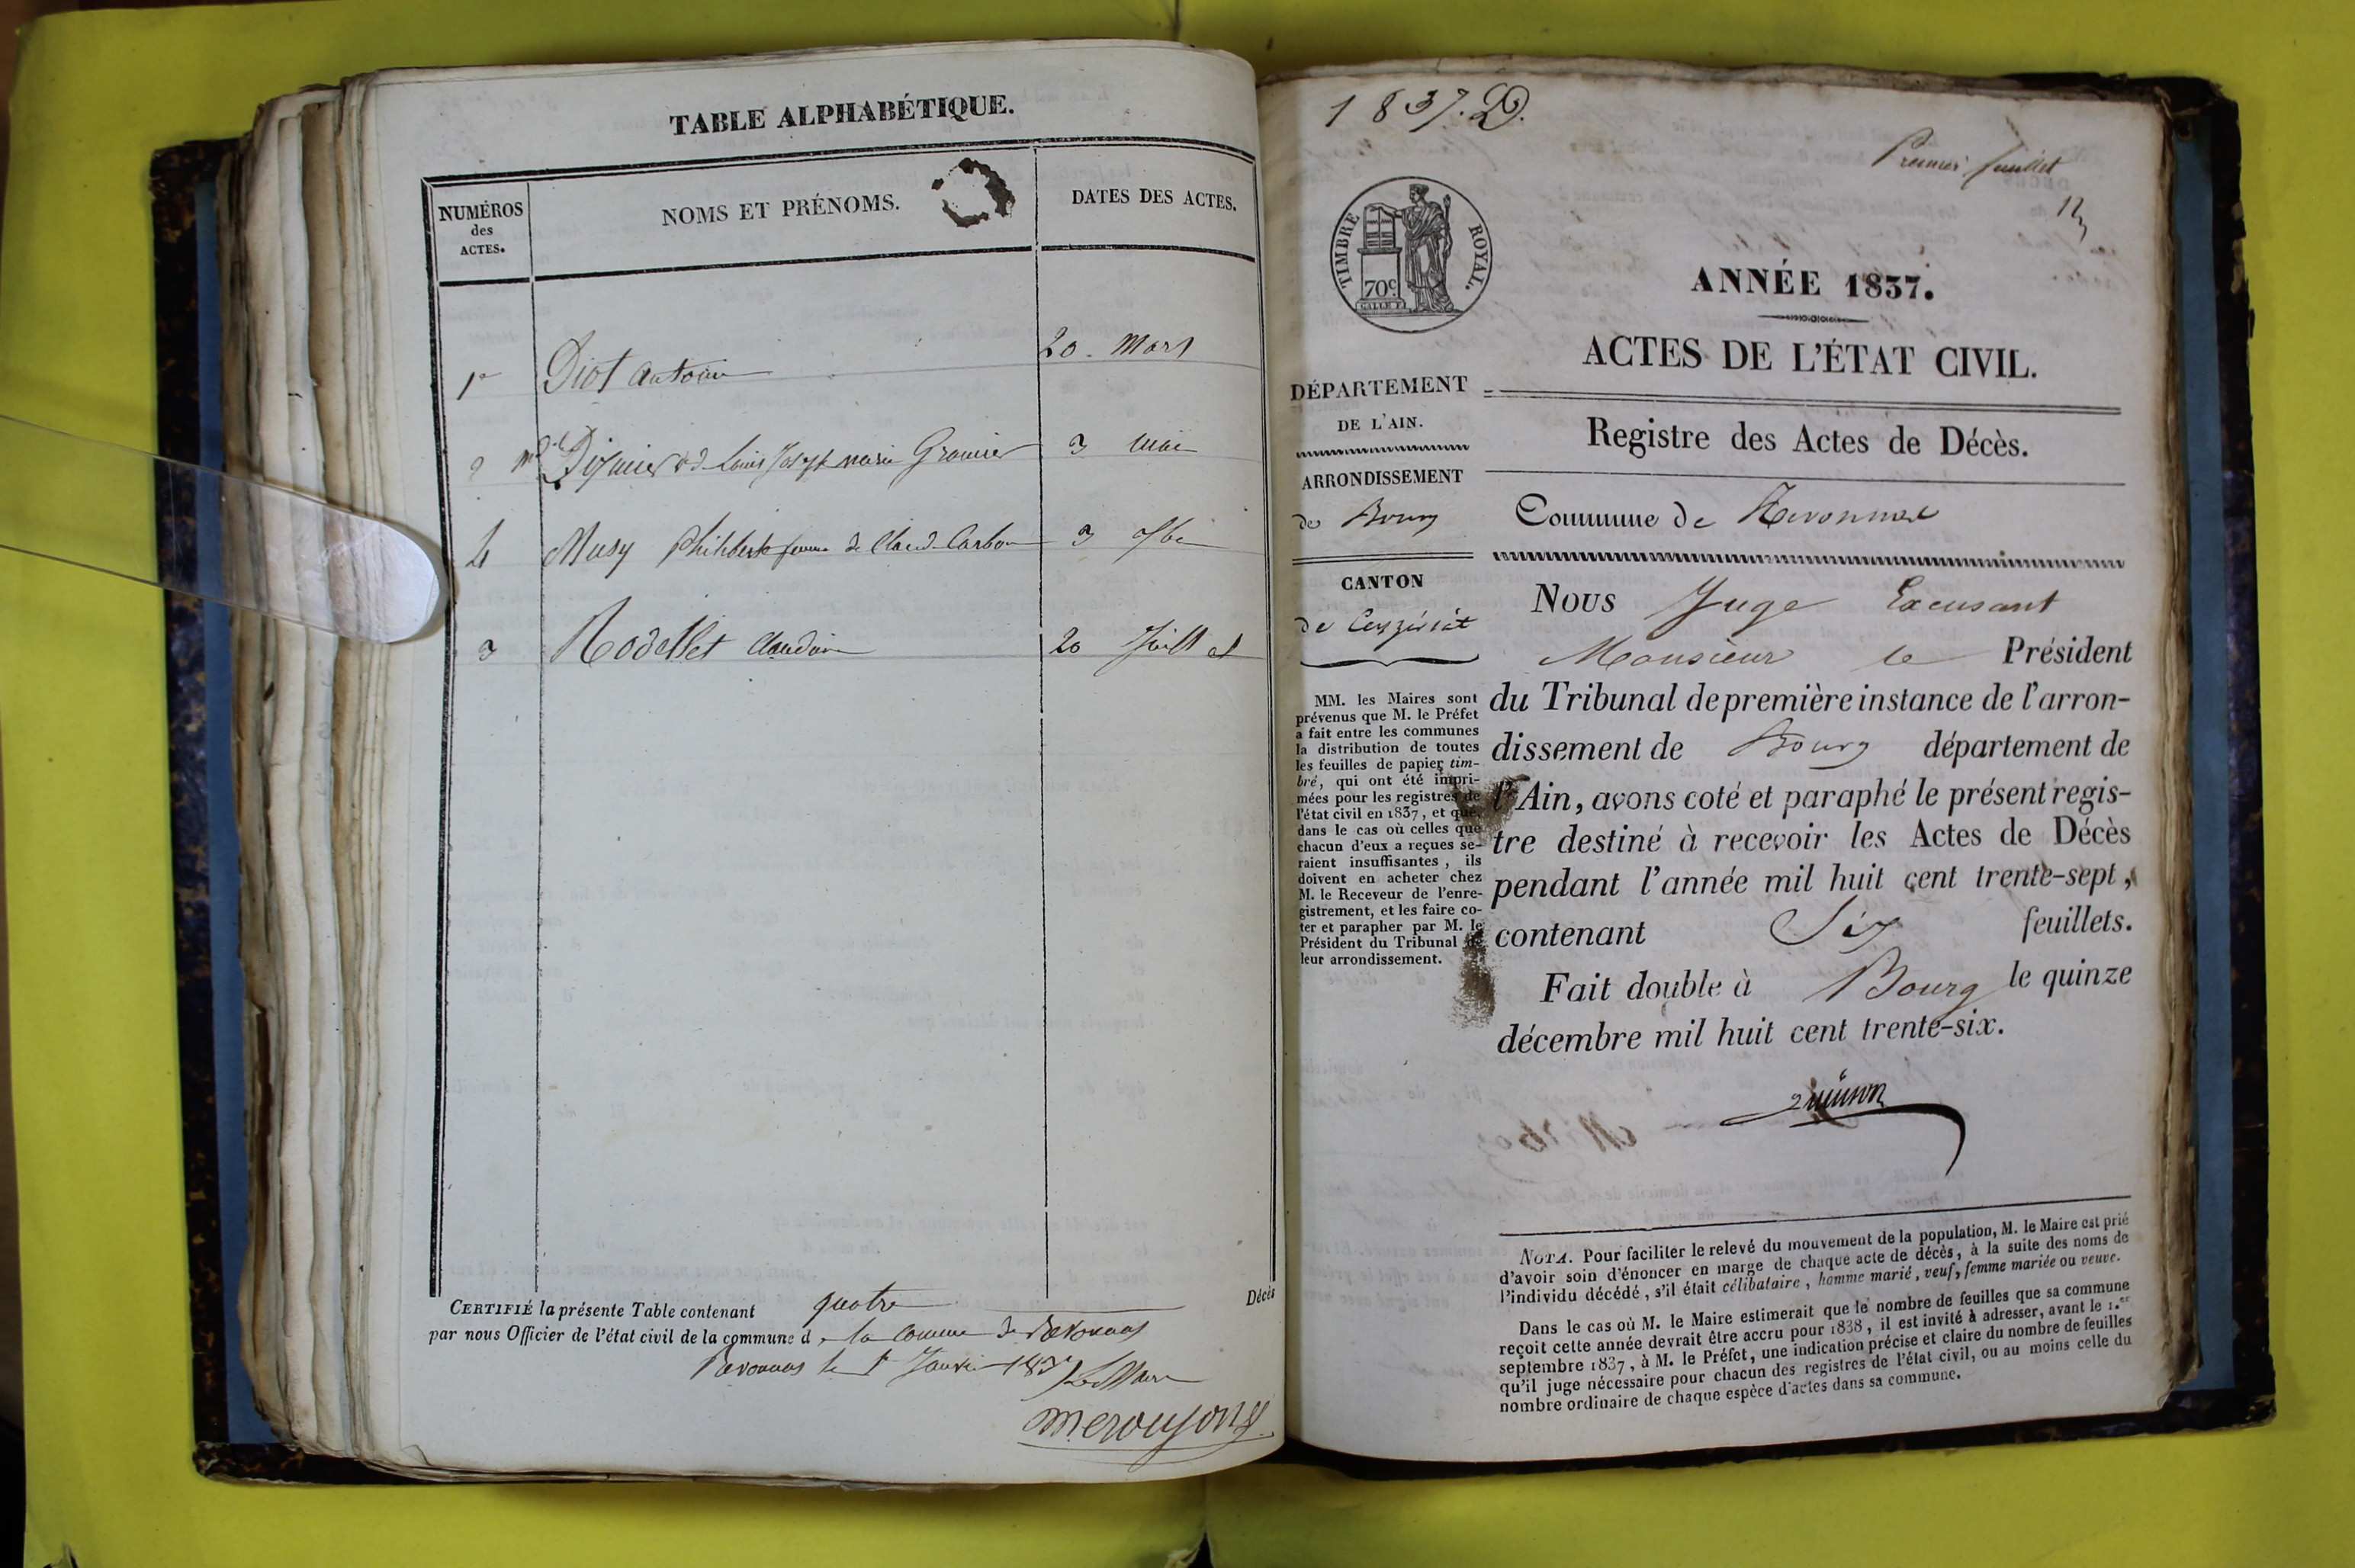 TABLE ALPHABÉTIQUE.
NUMÉROS
des
ACTES.
NOMS ET PRÉNOMS.
DATES DES ACTES.
1er Diot antoine 20. Mars
2 Louis Joseph marie Granier 3 mai
4 Musy Philiberte femme de Claud Carbon 3 7bre
3 Rodellet Claudine 20 Juillet
Décès
CERTIFIÉ la présente Table contenant quatre
par nous Officier de l'état civil de la commune d la Commune de Revonnas
Revonnas le 1er Janvier 1837 Le Maire
1837. D.
Premier feuillet
TIMBRE ROYAL.
70c
ANNÉE 1837.
ACTES DE L'ÉTAT CIVIL.
Registre des Actes de Décès.
Commune de Revonnas
DÉPARTEMENT
DE L'AIN.
ARRONDISSEMENT
de Bourg
CANTON
de Ceyzériat
MM. les Maires sont
prévenus que M. le Préfet
a fait entre les communes
la distribution de toutes
les feuilles de papier tim-
bré, qui ont été impri-
mées pour les registres de
l'état civil en 1837, et que,
dans le cas où celles que
chacun d'eux a reçues se-
raient insuffisantes, ils
doivent en acheter chez
M. le Receveur de l'enre-
gistrement, et les faire co-
ter et parapher par M. le
Président du Tribunal de
leur arrondissement.
NOUS Juge Excusant
Monsieur le Président
du Tribunal de première instance de l'arron-
dissement de Bourg département de
l'Ain, avons coté et paraphé le présent regis-
tre destiné à recevoir les Actes de Décès
pendant l'année mil huit cent trente-sept,
contenant Six feuillets.
Fait double à Bourg le quinze
décembre mil huit cent trente-six.
NOTA. Pour faciliter le relevé du mouvement de la population, M. le Maire est prié
d'avoir soin d'énoncer en marge de chaque acte de décès, à la suite des noms de
l'individu décédé, s'il était célibataire, homme marié, veuf, femme mariée ou veuve.
Dans le cas où M. le Maire estimerait que le nombre de feuilles que sa commune
reçoit cette année devrait être accru pour 1838, il est invité à adresser, avant le 1.er
septembre 1837, à M. le Préfet, une indication précise et claire du nombre de feuilles
qu'il juge nécessaire pour chacun des registres de l'état civil, ou au moins celle du
nombre ordinaire de chaque espèce d'actes dans sa commune.